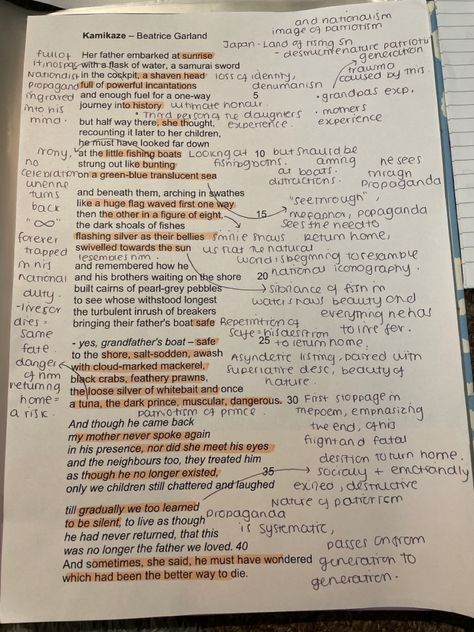 Kamikaze – Beatrice Garland
and nationalism
image of patriotism
Japan - Land of rising sn
- destructive nature patriotism
generation
trauma
caused by this.
• grandpas exp.
• mothers
experience
full of
propaganda
ingraved
into his
mind.
Her father embarked at sunrise
with a flask of water, a samurai sword
in the cockpit, a shaven head
loss of identity,
full of powerful incantations
and enough fuel for a one-way 5
journey into history
ultimate honour.
• Third person, the daughters
experience.
but half way there, she thought,
recounting it later to her children,
he must have looked far down
at the little fishing boats 10
strung out like bunting
on a green-blue translucent sea
Looking at
fishing boats.
but should be
aiming
at boats.
distractions.
he sees
through
propaganda
"see through"
irony,
no
celebration
when he
turns
back
and beneath them, arching in swathes
like a huge flag waved first one way
then the other in a figure of eight, 15
the dark shoals of fishes
flashing silver as their bellies
swivelled towards the sun
metaphor, popaganda
sees the need to
return home,
simile shows
us that the natural
world is beginning to resemble
national iconography.
"∞"
forever
trapped
in his
national
duty.
- lives or
dies =
same
fate.
and remembered how he
and his brothers waiting on the shore 20
built cairns of pearl-grey pebbles
to see whose withstood longest
the turbulent inrush of breakers
bringing their father's boat safe
sibilance of fish in
water shows beauty and
everything he has
to live for.
Repetition of
safe = his desition
to return home.
- yes, grandfather's boat – safe 25
to the shore, salt-sodden, awash
with cloud-marked mackerel,
black crabs, feathery prawns,
the loose silver of whitebait and once
a tuna, the dark prince, muscular, dangerous. 30
Asyndetic listing, paired with
superlative desc, beauty of
nature.
danger
of him
returning
home =
a risk.
patriotism of prince.
First stoppage in
the poem, emphasizing
the end, of his
flight and fatal
desition to turn home.
And though he came back
my mother never spoke again
in his presence, nor did she meet his eyes
and the neighbours too, they treated him
as though he no longer existed, 35
only we children still chattered and laughed
socially + emotionally
exiled, destructive
nature of patriotism
till gradually we too learned
to be silent, to live as though
he had never returned, that this
was no longer the father we loved. 40
And sometimes, she said, he must have wondered
which had been the better way to die.
propaganda
is systematic,
passes on from
generation to
generation.